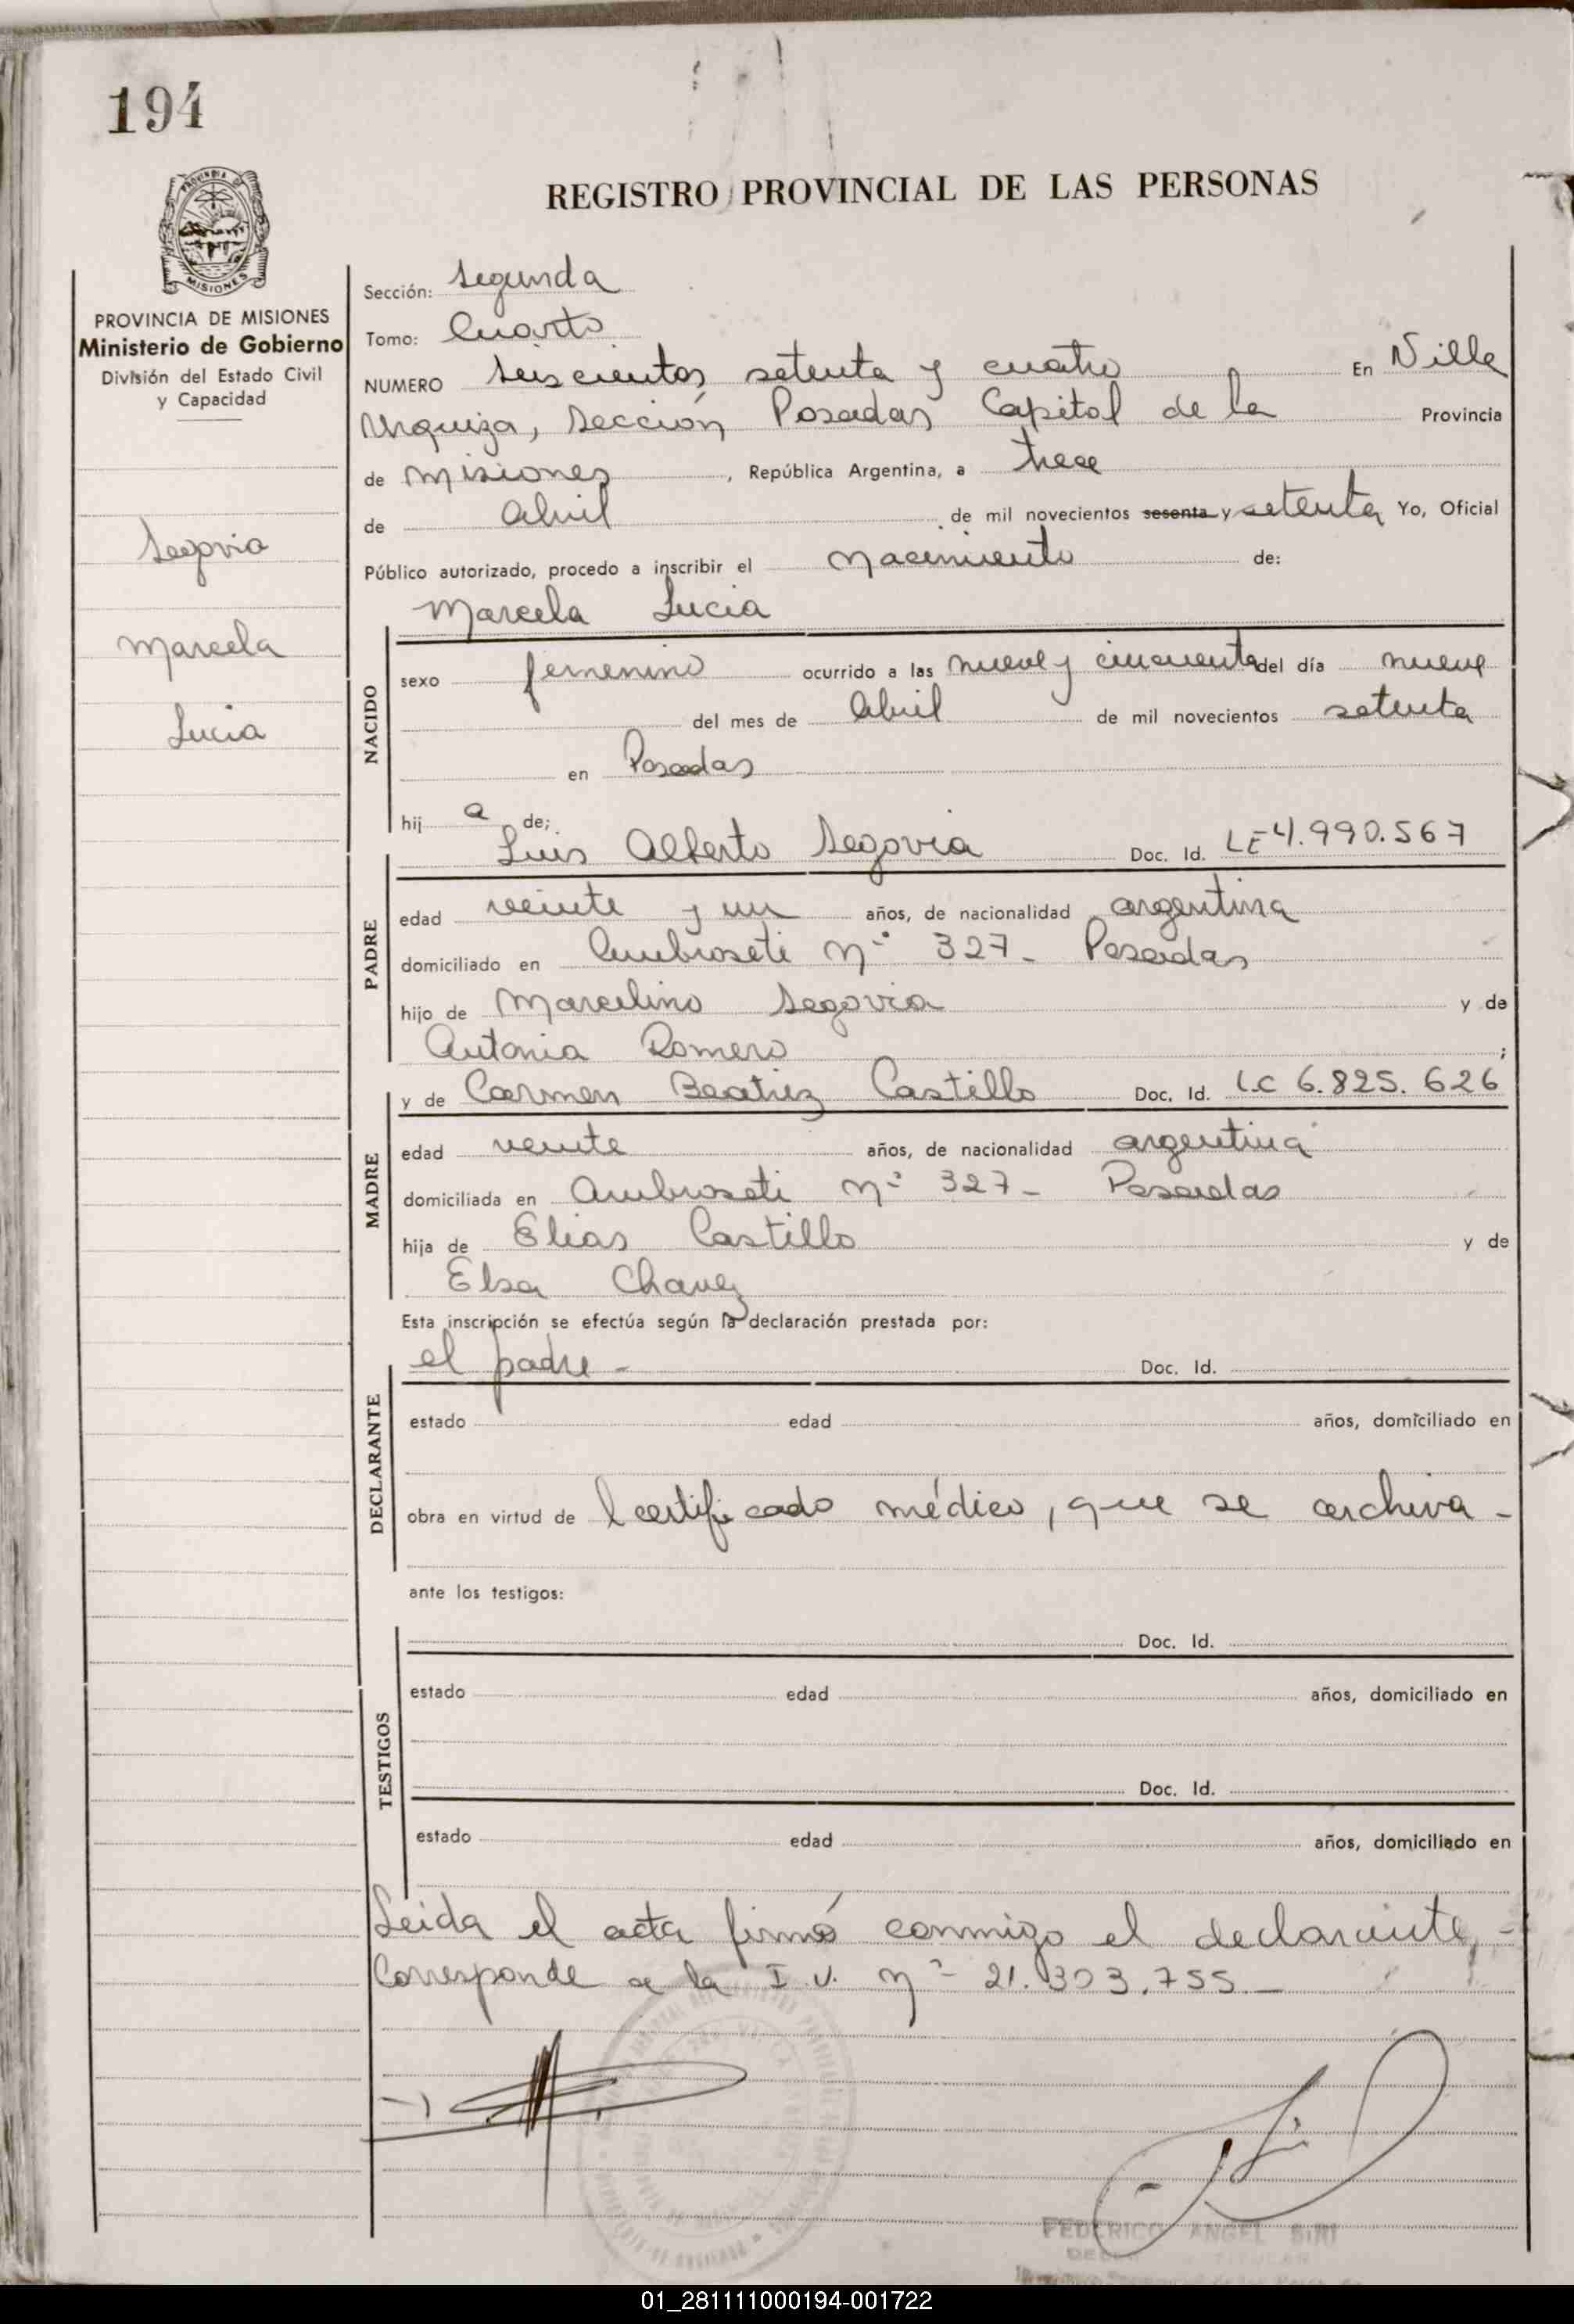 194
REGISTRO PROVINCIAL DE LAS PERSONAS
PROVINCIA DE MISIONES
Ministerio de Gobierno
División del Estado Civil
y Capacidad
Segovia
Marcela
Lucia
Sección: Segunda
Tomo: Cuarto
NUMERO Seiscientos setenta y cuatro En Villa
Urquiza, Sección Posadas Capital de la Provincia
de Misiones, República Argentina, a trece
de Abril de mil novecientos sesenta y setenta Yo, Oficial
Público autorizado, procedo a inscribir el nacimiento de:
Marcela Lucia
NACIDO
sexo femenino ocurrido a las nueve y cincuenta del día nueve
del mes de Abril de mil novecientos setenta
en Posadas
hij a de:
Luis Alberto Segovia Doc. Id. LE 4.990.567
PADRE
edad veinte y un años, de nacionalidad argentina
domiciliado en Ambroseti nº 327- Posadas
hijo de Marcelino Segovia y de
Antonia Romero ;
y de Carmen Beatriz Castillo Doc. Id. LC 6.825.626
MADRE
edad veinte años, de nacionalidad argentina
domiciliada en Ambroseti nº 327- Posadas
hija de Elias Castillo y de
Elsa Chavez
Esta inscripción se efectúa según la declaración prestada por:
el padre - Doc. Id.
DECLARANTE
estado edad años, domiciliado en
obra en virtud de l certificado médico, que se archiva-
ante los testigos:
Doc. Id.
TESTIGOS
estado edad años, domiciliado en
Doc. Id.
estado edad años, domiciliado en
Leida el acta firmó conmigo el declarante,-
Corresponde a la I.U. nº 21.303.755-
FEDERICO ANGEL SIRI
TITULAR
01_281111000194-001722